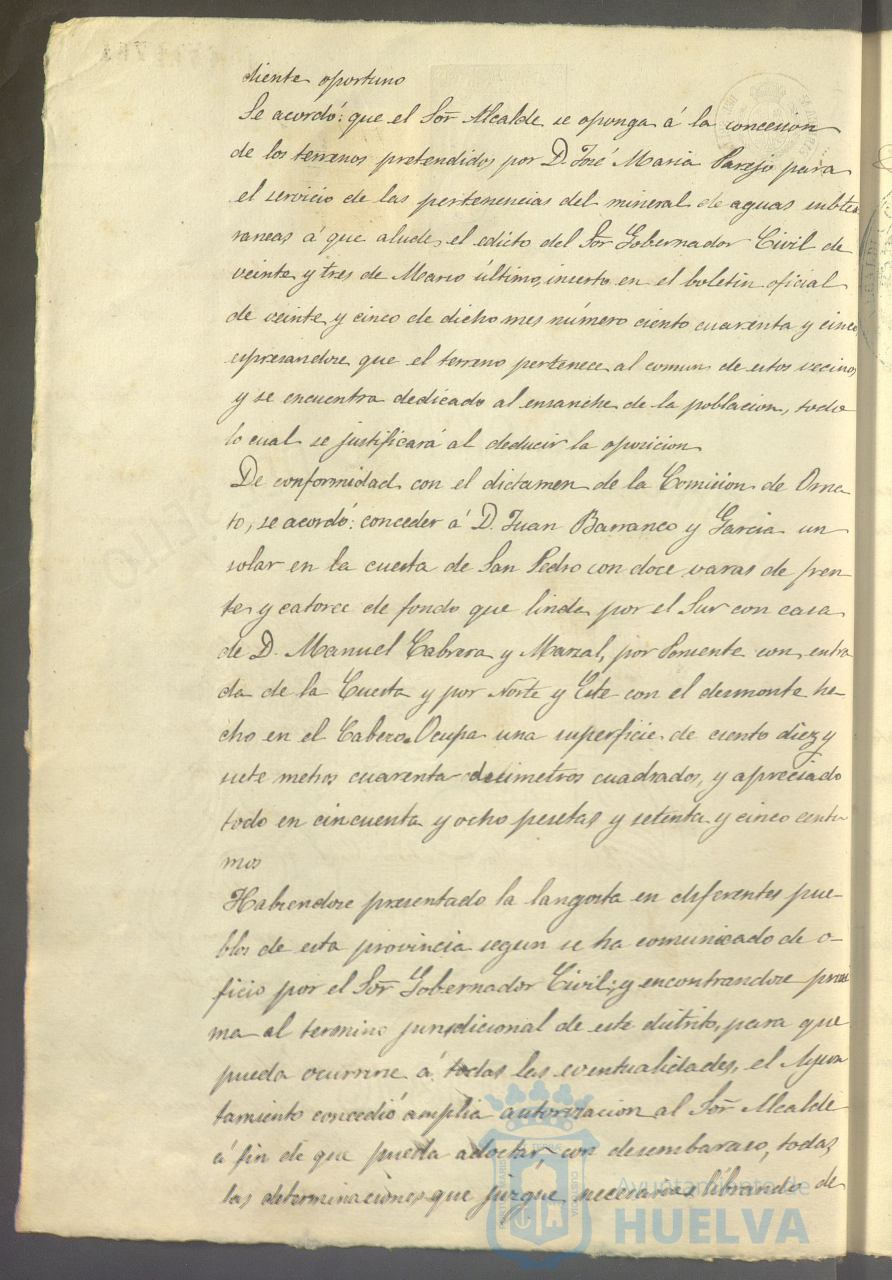 diente oportuno
Se acordó: que el Sor Alcalde se oponga á la concesion
de los terrenos pretendidos por D. José Maria Parejo para
el servicio de las pertenencias del mineral de aguas subte
rraneas á que alude el edicto del Sor Gobernador Civil de
veinte y tres de Marzo último, inserto en el boletin oficial
de veinte y cinco de dicho mes número ciento cuarenta y cinco,
espresandose que el terreno pertenece al comun de estos vecinos
y se encuentra dedicado al ensanche de la poblacion, todo
lo cual se justificará al deducir la oposicion
De conformidad con el dictamen de la Comision de Orna
to, se acordó: conceder á D. Juan Barranco y Garcia un
solar en la cuesta de San Pedro con doce varas de fren
te y catorce de fondo que linda por el Sur con casa
de D. Manuel Cabrera y Marzal, por Poniente con entra
da de la Cuesta y por Norte y Este con el desmonte he-
cho en el Cabezo. Ocupa una superficie de ciento diez y
siete metros cuarenta decimetros cuadrados, y apreciado
todo en cincuenta y ocho pesetas y setenta y cinco centi
mos
Habiendose presentado la langosta en diferentes pue-
blos de esta provincia segun se ha comunicado de o-
ficio por el Sor Gobernador Civil; y encontrandose proxi
ma al termino jurisdicional de este distrito, para que
pueda ocurrirse á todas las eventualidades, el Ayun
tamiento concedió amplia autorizacion al Sor Alcalde
á fin de que pueda adoctar con desembarazo, todas
las determinaciones que juzgue necesarias librando de
Ayuntamiento de
HUELVA